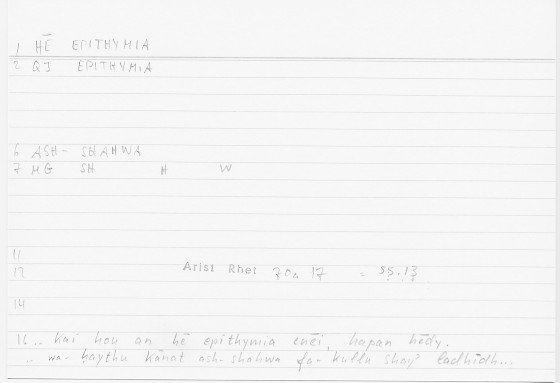 1 HĒ EPITHYMIA
2 QJ EPITHYMIA
6 ASH-SHAHWA
7 MG SH H W
11
12 Arist Rhet 70a 17 = 55.13
14
16 .. kai hou an hē epithymia enēi, hapan hēdy.
.. wa-ḥaythu kānat ash-shahwa fa-kullu shayʾ ladhīdh...